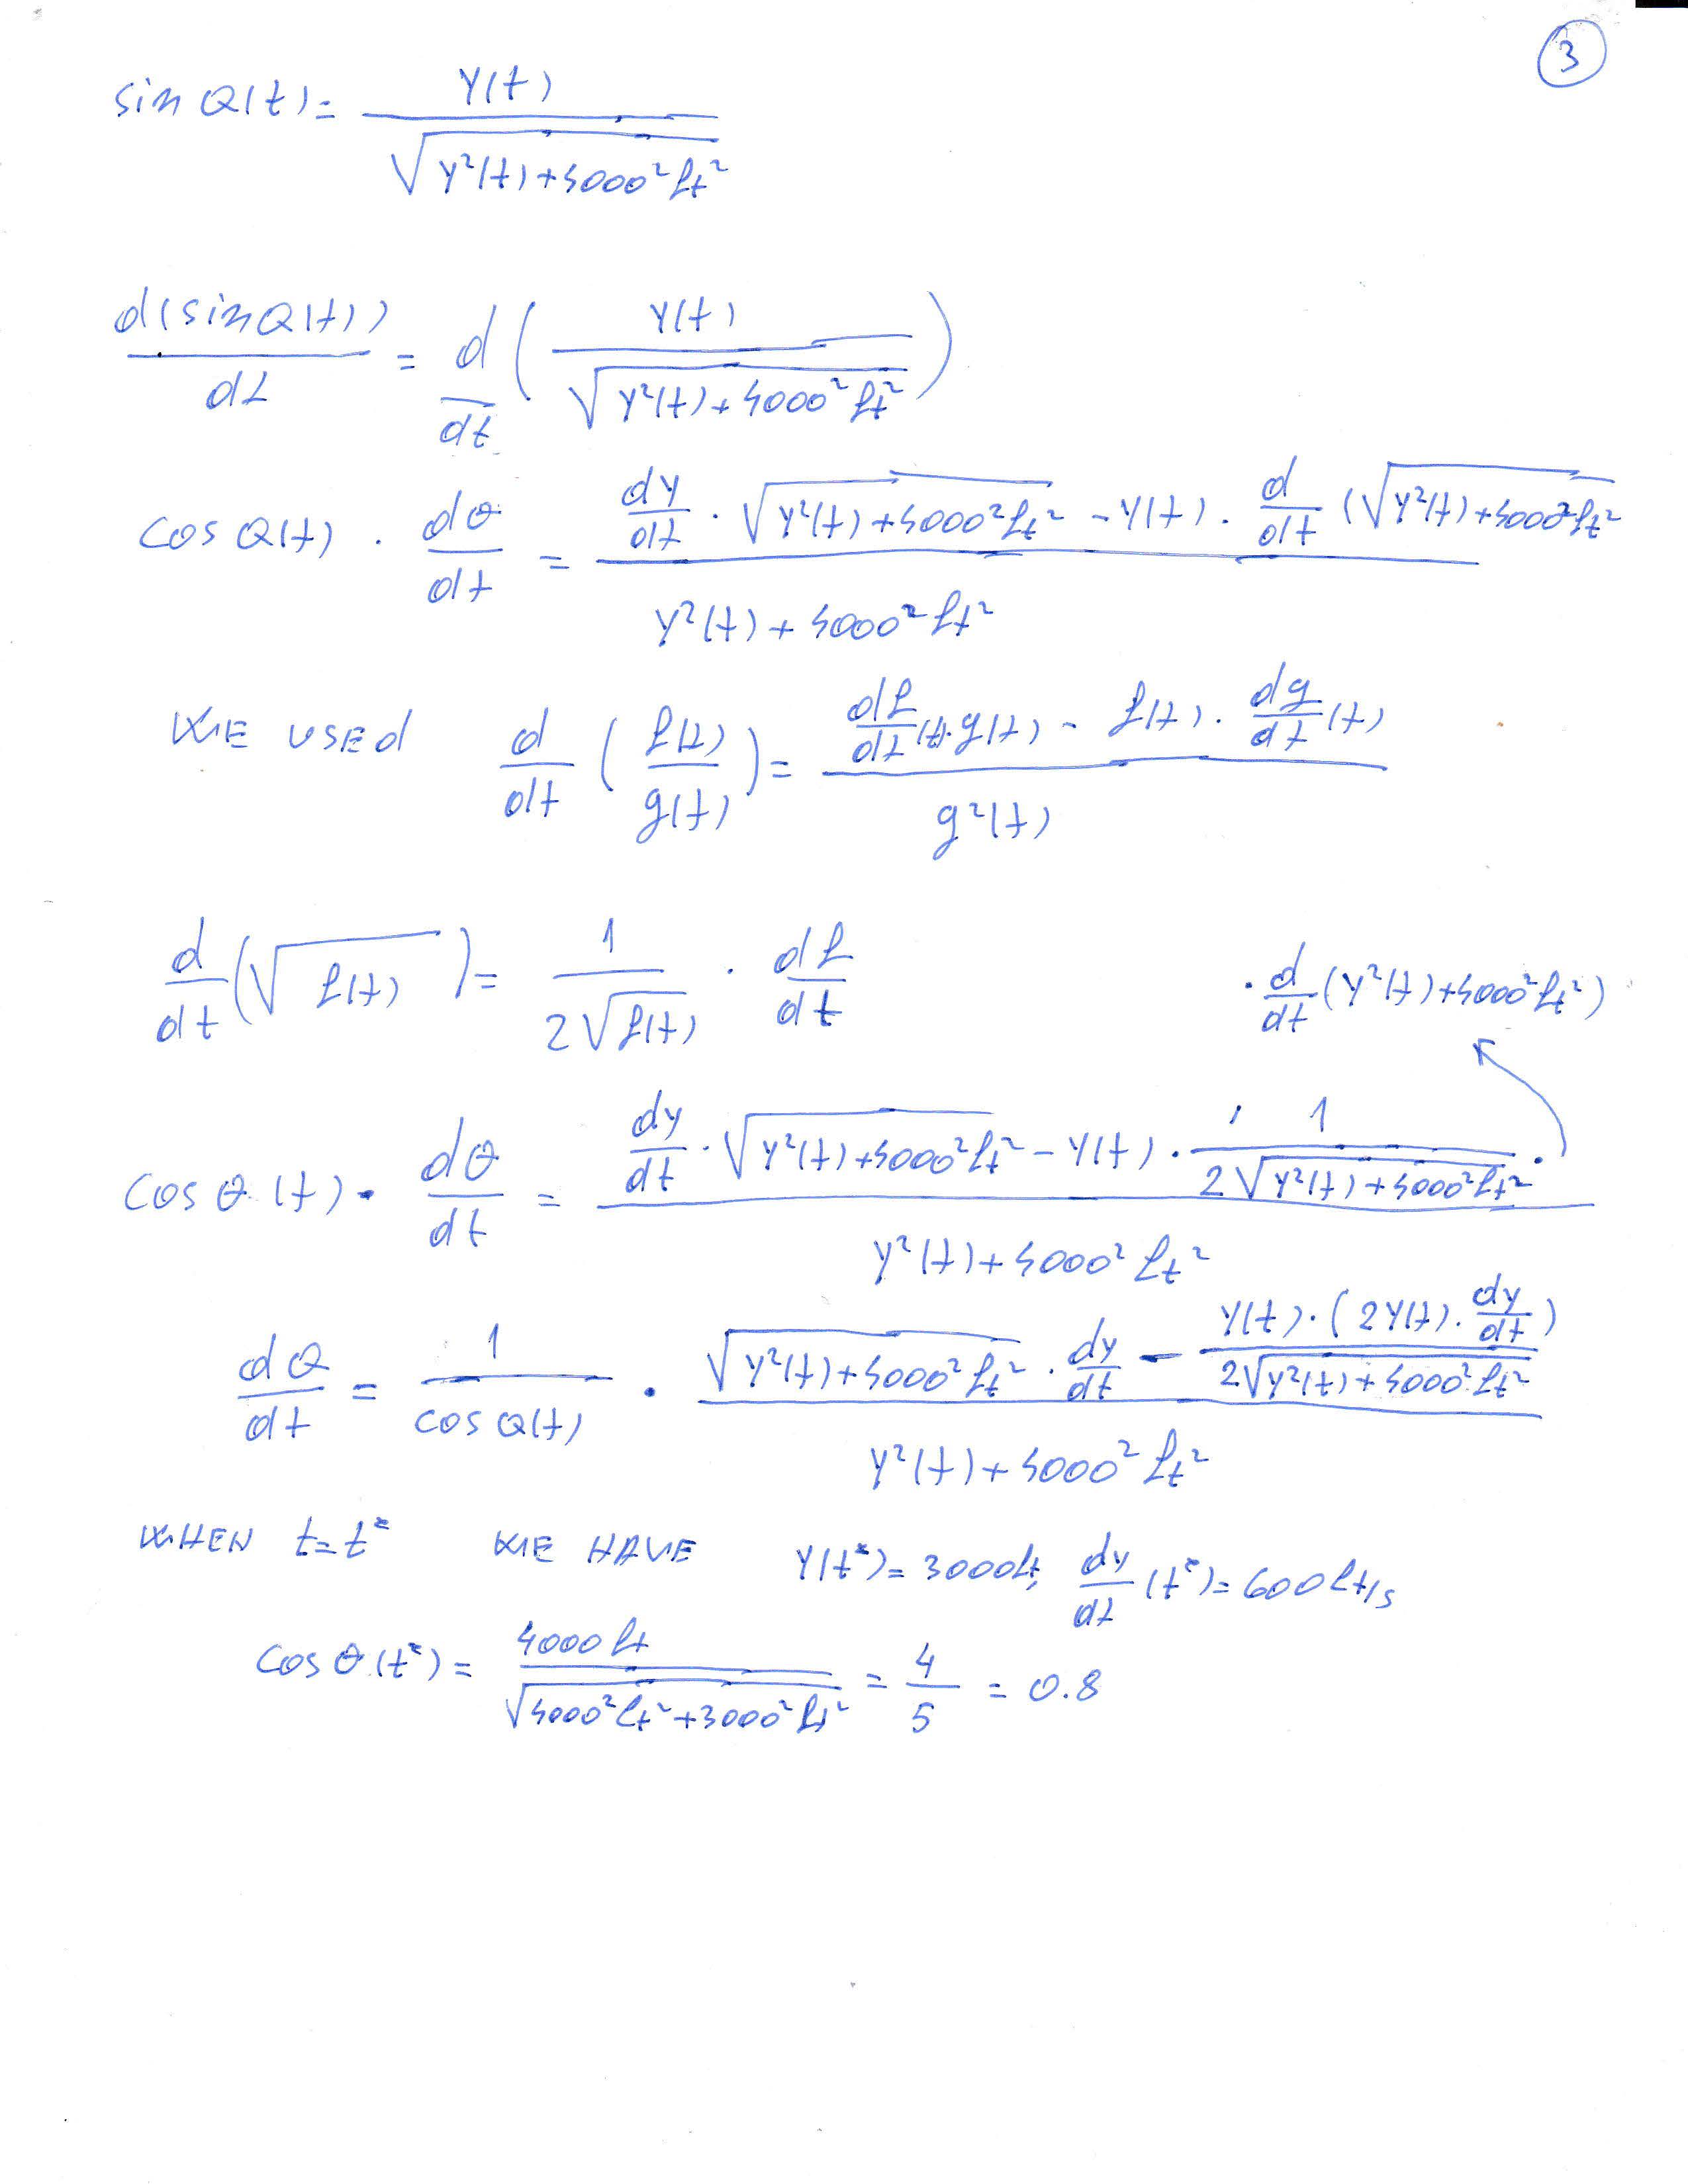 3
sin θ(t) = y(t) / √(y²(t) + 4000² ft²)
d(sin θ(t)) / dt = d/dt ( y(t) / √(y²(t) + 4000² ft²) )
cos θ(t) · dθ/dt = ( dy/dt · √(y²(t) + 4000² ft²) - y(t) · d/dt (√(y²(t) + 4000² ft²) ) / ( y²(t) + 4000² ft² )
WE USED d/dt ( f(t) / g(t) ) = ( df/dt (t) · g(t) - f(t) · dg/dt (t) ) / g²(t)
d/dt ( √f(t) ) = 1 / (2√f(t)) · df/dt
· d/dt (y²(t) + 4000² ft²)
cos θ(t) · dθ/dt = ( dy/dt · √(y²(t) + 4000² ft²) - y(t) · 1 / (2√(y²(t) + 4000² ft²)) · ) / ( y²(t) + 4000² ft² )
dθ/dt = 1 / cos θ(t) · ( √(y²(t) + 4000² ft²) · dy/dt - y(t) · (2y(t) · dy/dt) / (2√(y²(t) + 4000² ft²)) ) / ( y²(t) + 4000² ft² )
WHEN t = t* WE HAVE y(t*) = 3000 ft, dy/dt (t*) = 600 ft/s
cos θ(t*) = 4000 ft / √(4000² ft² + 3000² ft²) = 4/5 = 0.8